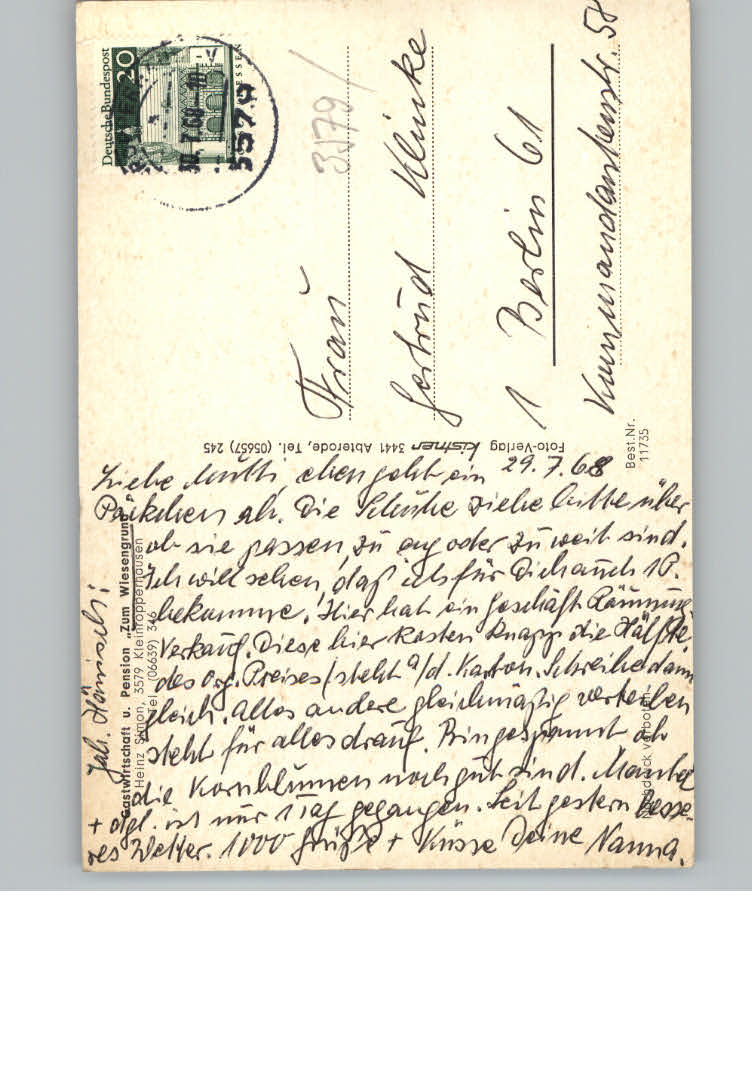 Deutsche Bundespost
20
30.7.68-10
3579
3579/
Frau
Gertrud Klinke
1 Berlin 61
Kommandantenstr. 58
Foto-Verlag kistner 3441 Abterode, Tel. (05657) 245
Best.Nr.
11735
Gastwirtschaft u. Pension „Zum Wiesengrund“
Heinz Simon, 3579 Kleinropperhausen
Tel. (06639) 346
Nachdruck verboten
29.7.68
Liebe Mutti, eben geht ein
Päckchen ab. Die Schuhe ziehe bitte über
ob sie passen, zu eng oder zu weit sind.
Ich will sehen, daß ich für Dich auch 1 P.
bekomme. Hier hat ein Geschäft Räumungs
Verkauf. Diese hier kosten knapp die Hälfte
des Org. Preises/steht a/d. Karton. Schreibe dann
gleich. Alles andere gleichmäßig verteilen
steht für alles drauf. Bin gespannt ob
die Kornblumen noch gut sind.
+ dgl. ist nur 1 Tag gegangen. Seit gestern besse-
res Wetter. 1000 Grüße + Küsse Deine Nanna.